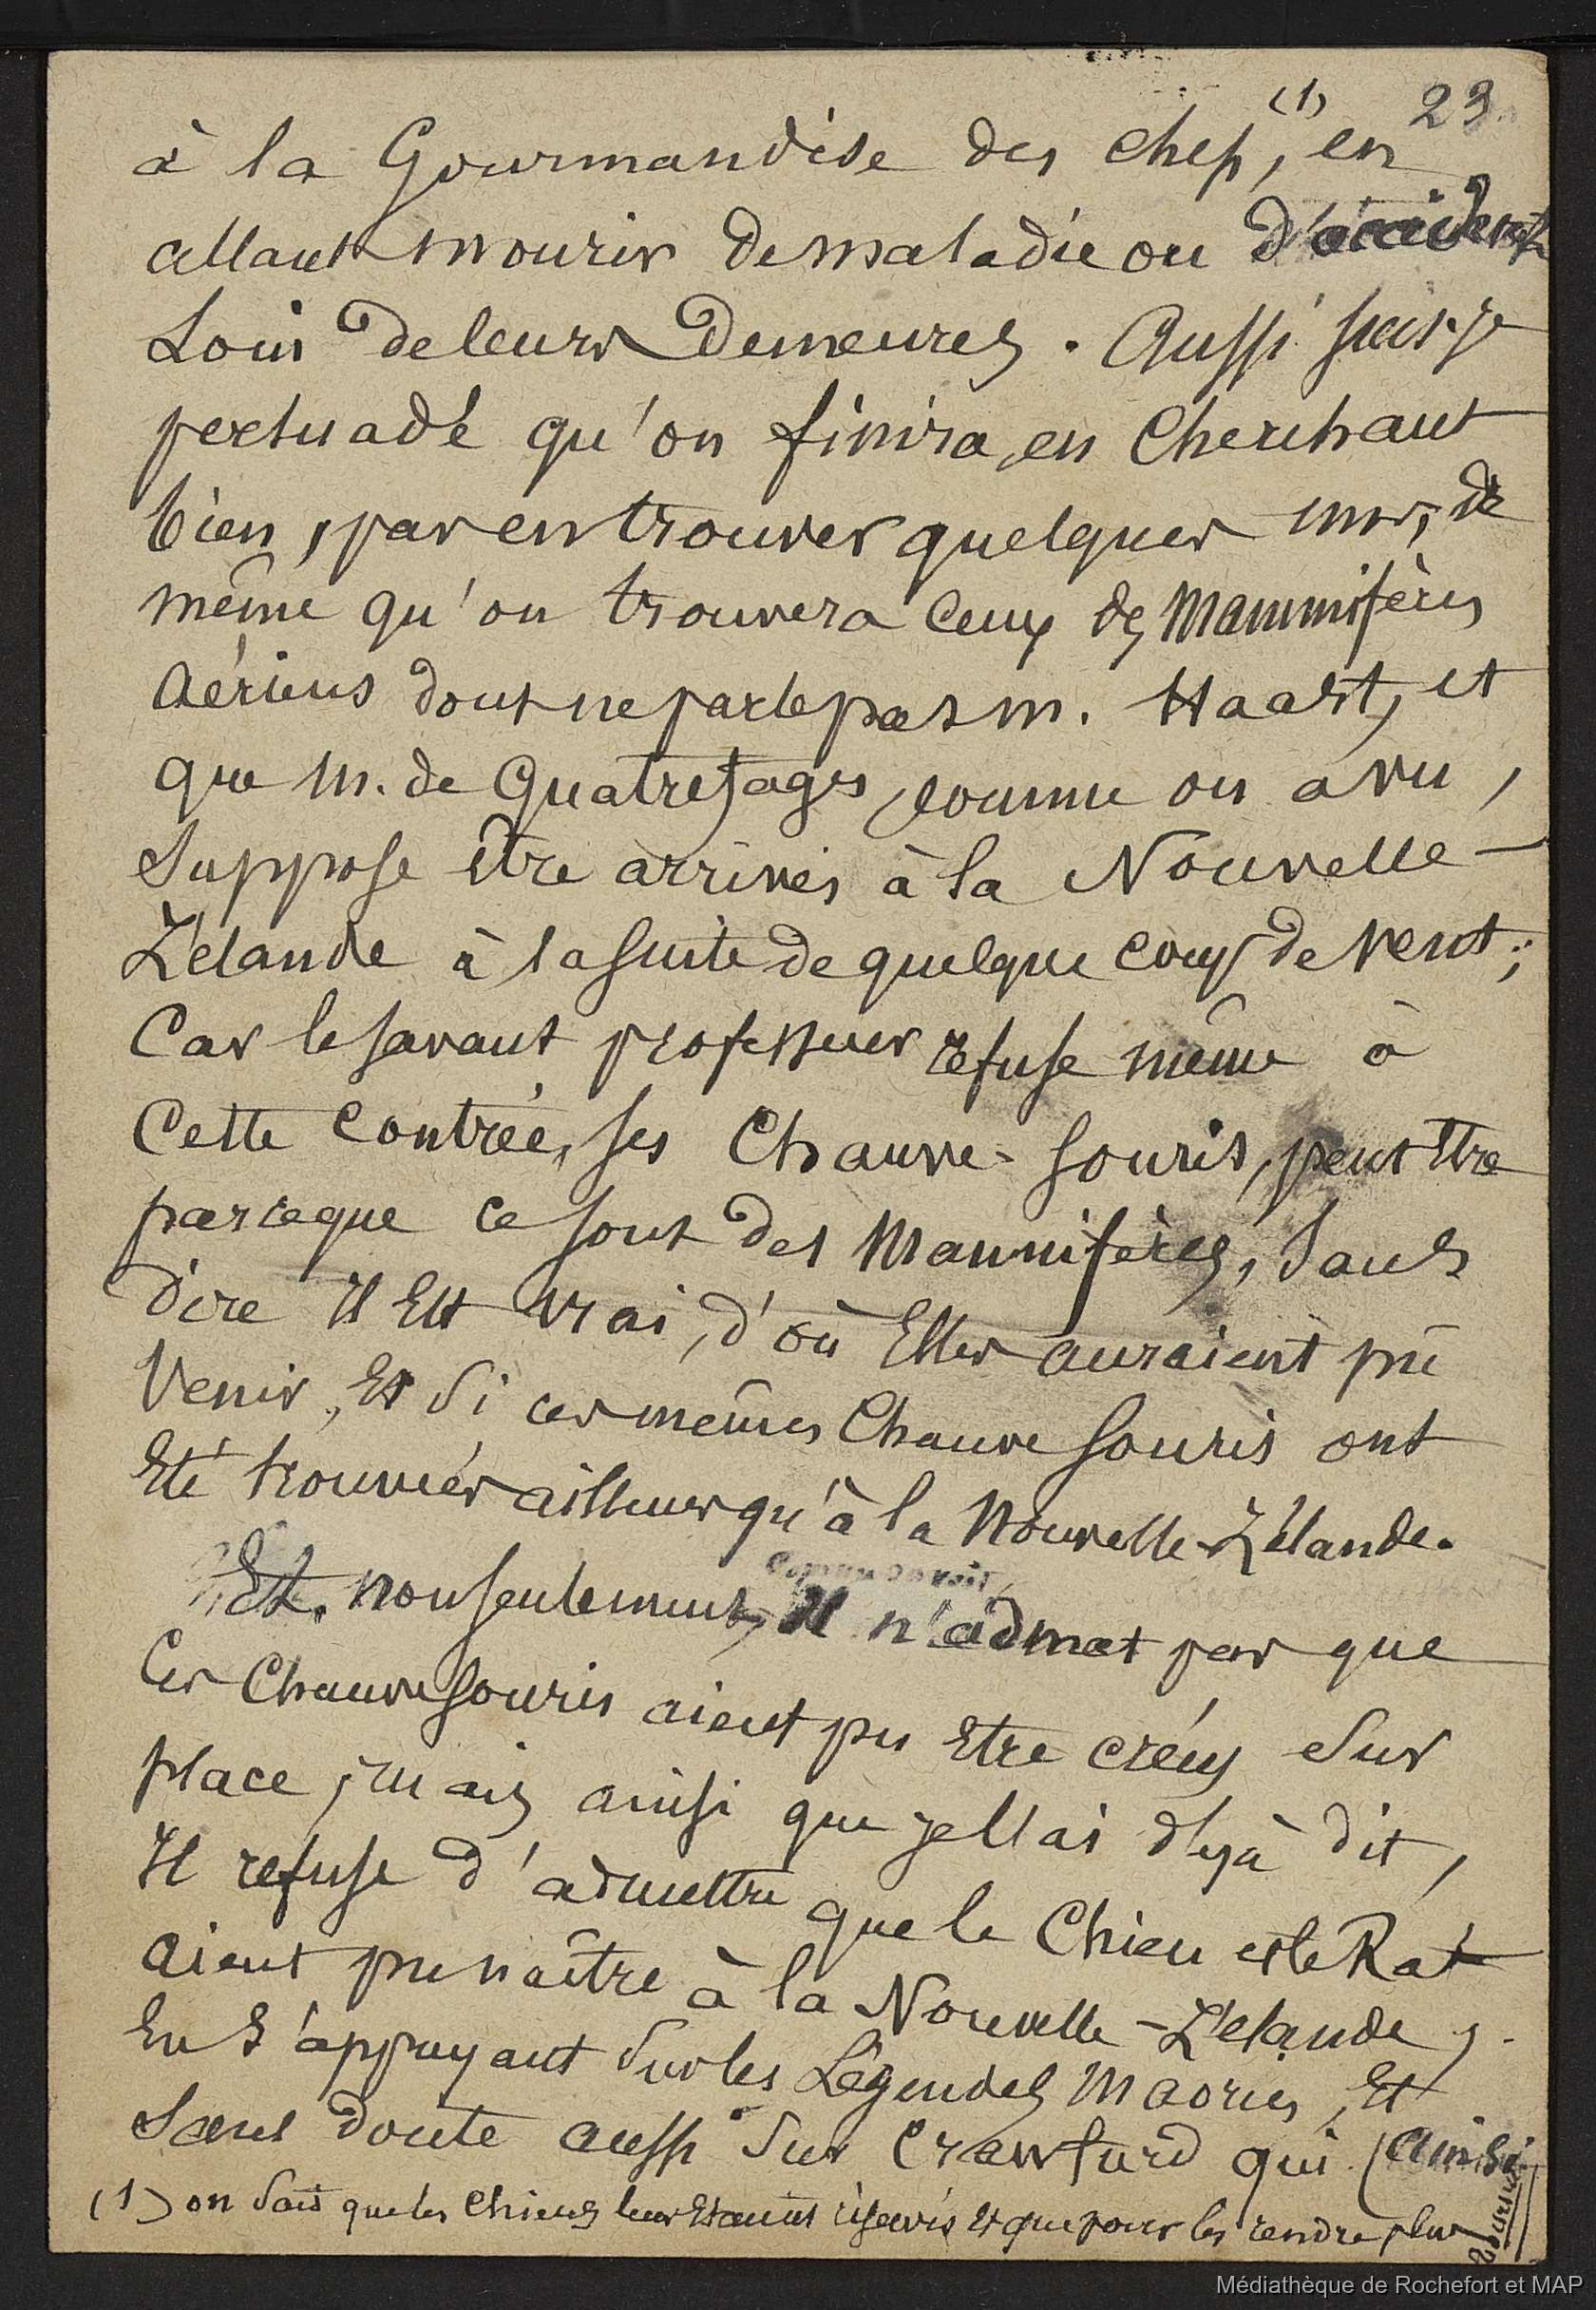 (1) 29
à la Gourmandise des chefs, en
allant mourir de maladie ou d'accident
Loin de leurs Demeures. Aussi suis-je
persuadé qu'on finira, en Cherchant
bien, par en trouver quelques uns, de
même qu'on trouvera ceux des Mammifères
Aériens dont ne parle pas m. Haast, et
que M. de Quatrefages, comme on a vu,
Suppose être arrivés à la Nouvelle-
Zélande à la suite de quelque coup de vent;
Car le savant professeur refuse même à
Cette Contrée, ses Chauve-Souris, peut être
parceque ce sont des Mammifères, Sans
dire il Est vrai, d'où Elles auraient pû
Venir, Et Si ces mêmes Chauve Souris ont
Eté trouvées ailleurs qu'à la Nouvelle-Zélande.
Et, non seulement, Il n'admet pas que
Ces Chauve Souris aient pu Etre créés Sur
place, mais ainsi que je l'ai déjà dit,
Il refuse d'admettre que le Chien et le Rat
Aient pu naître à la Nouvelle-Zélande,
En S'appuyant Sur les Légendes Maories, Et
Sans doute aussi Sur Crawfurd qui (Ainsi
(1) on Sait que les Chiens leur Etaient réservés et que pour les rendre plus
Médiathèque de Rochefort et MAP